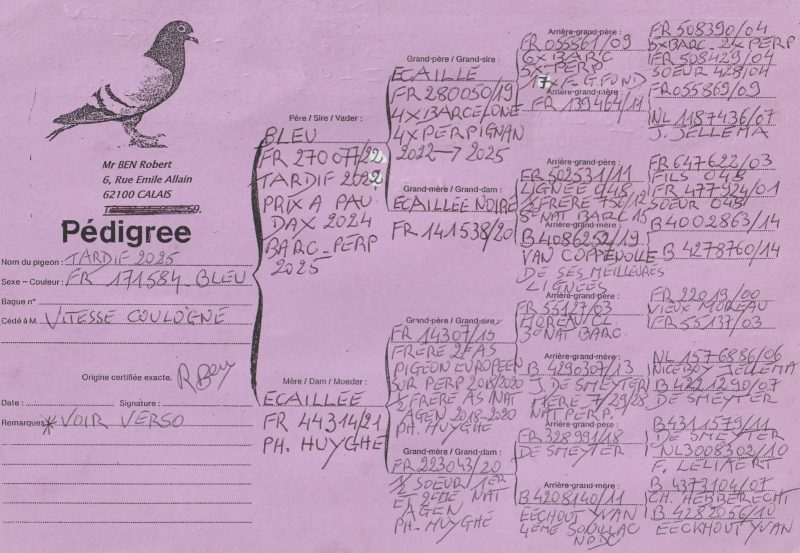 Mr BEN Robert
6, Rue Emile Allain
62100 CALAIS
Pédigree
Nom du pigeon : TARDIF 2025
Sexe – Couleur : FR 171584 - BLEU
Bague n°
Cédé à M. VITESSE COULOGNE
Origine certifiée exacte. R Ben
Date : Signature :
Remarques * VOIR VERSO
Père / Sire / Vader :
BLEU
FR 270077/22
TARDIF 2022
PRIX A PAU
DAX 2024
BARC-PERP
2025
Mère / Dam / Moeder :
ECAILLEE
FR 44314/21
PH. HUYGHE
Grand-père / Grand-sire :
ECAILLE
FR 280050/19
4X BARCELONE
4X PERPIGNAN
2022 → 2025
Grand-mère / Grand-dam :
ECAILLEE NOIRE
FR 141538/20
Grand-père / Grand-sire :
FR 14307/15
FRERE 2E AS
PIGEON EUROPEEN
SUR PERP 2018/2020
1/2 FRERE AS NAT
AGEN 2018-2020
PH. HUYGHE
Grand-mère / Grand-dam :
FR 223043/20
1/2 SOEUR 1ER
ET 2EME NAT
AGEN
PH. HUYGHE
Arrière-grand-père :
FR 055561/09
6X BARC
5X PERP
17X F. G FOND
Arrière-grand-mère :
FR 139464/11
Arrière-grand-père :
FR 502531/11
LIGNEE 048
FRERE 750/12
8E NAT BARC 15
Arrière-grand-mère :
B 4086252/19
VAN COPPENOLLE
DE SES MEILLEURES
LIGNEES
Arrière-grand-père :
FR 55127/03
MOREAU CL.
3E NAT BARC.
Arrière-grand-mère :
B 4290307/13
J. DE SMEYTER
MERE 7/29/28
NAT PERP.
Arrière-grand-père :
FR 328991/18
DE SMEYTER
Arrière-grand-mère :
B 4208140/11
EECHOUT YVAN
4EME SOUILLAC
FR 508390/04
5X BARC - 2X PERP
FR 508429/04
SOEUR 428/04
FR 055869/09
NL 1187436/07
J. JELLEMA
FR 647622/03
FILS 048
FR 477924/01
SOEUR 048
B 4002863/14
B 4278760/14
FR 22019/00
VIEUX MOREAU
FR 55137/03
NL 1576886/06
NICEBOY JELLEMA
B 4221290/07
DE SMEYTER
B 4311579/11
DE SMEYTER
NL 3008302/10
F. LELIAERT
B 4373104/07
CH. HEBBERECHT
B 4282056/10
EECKHOUT YVAN